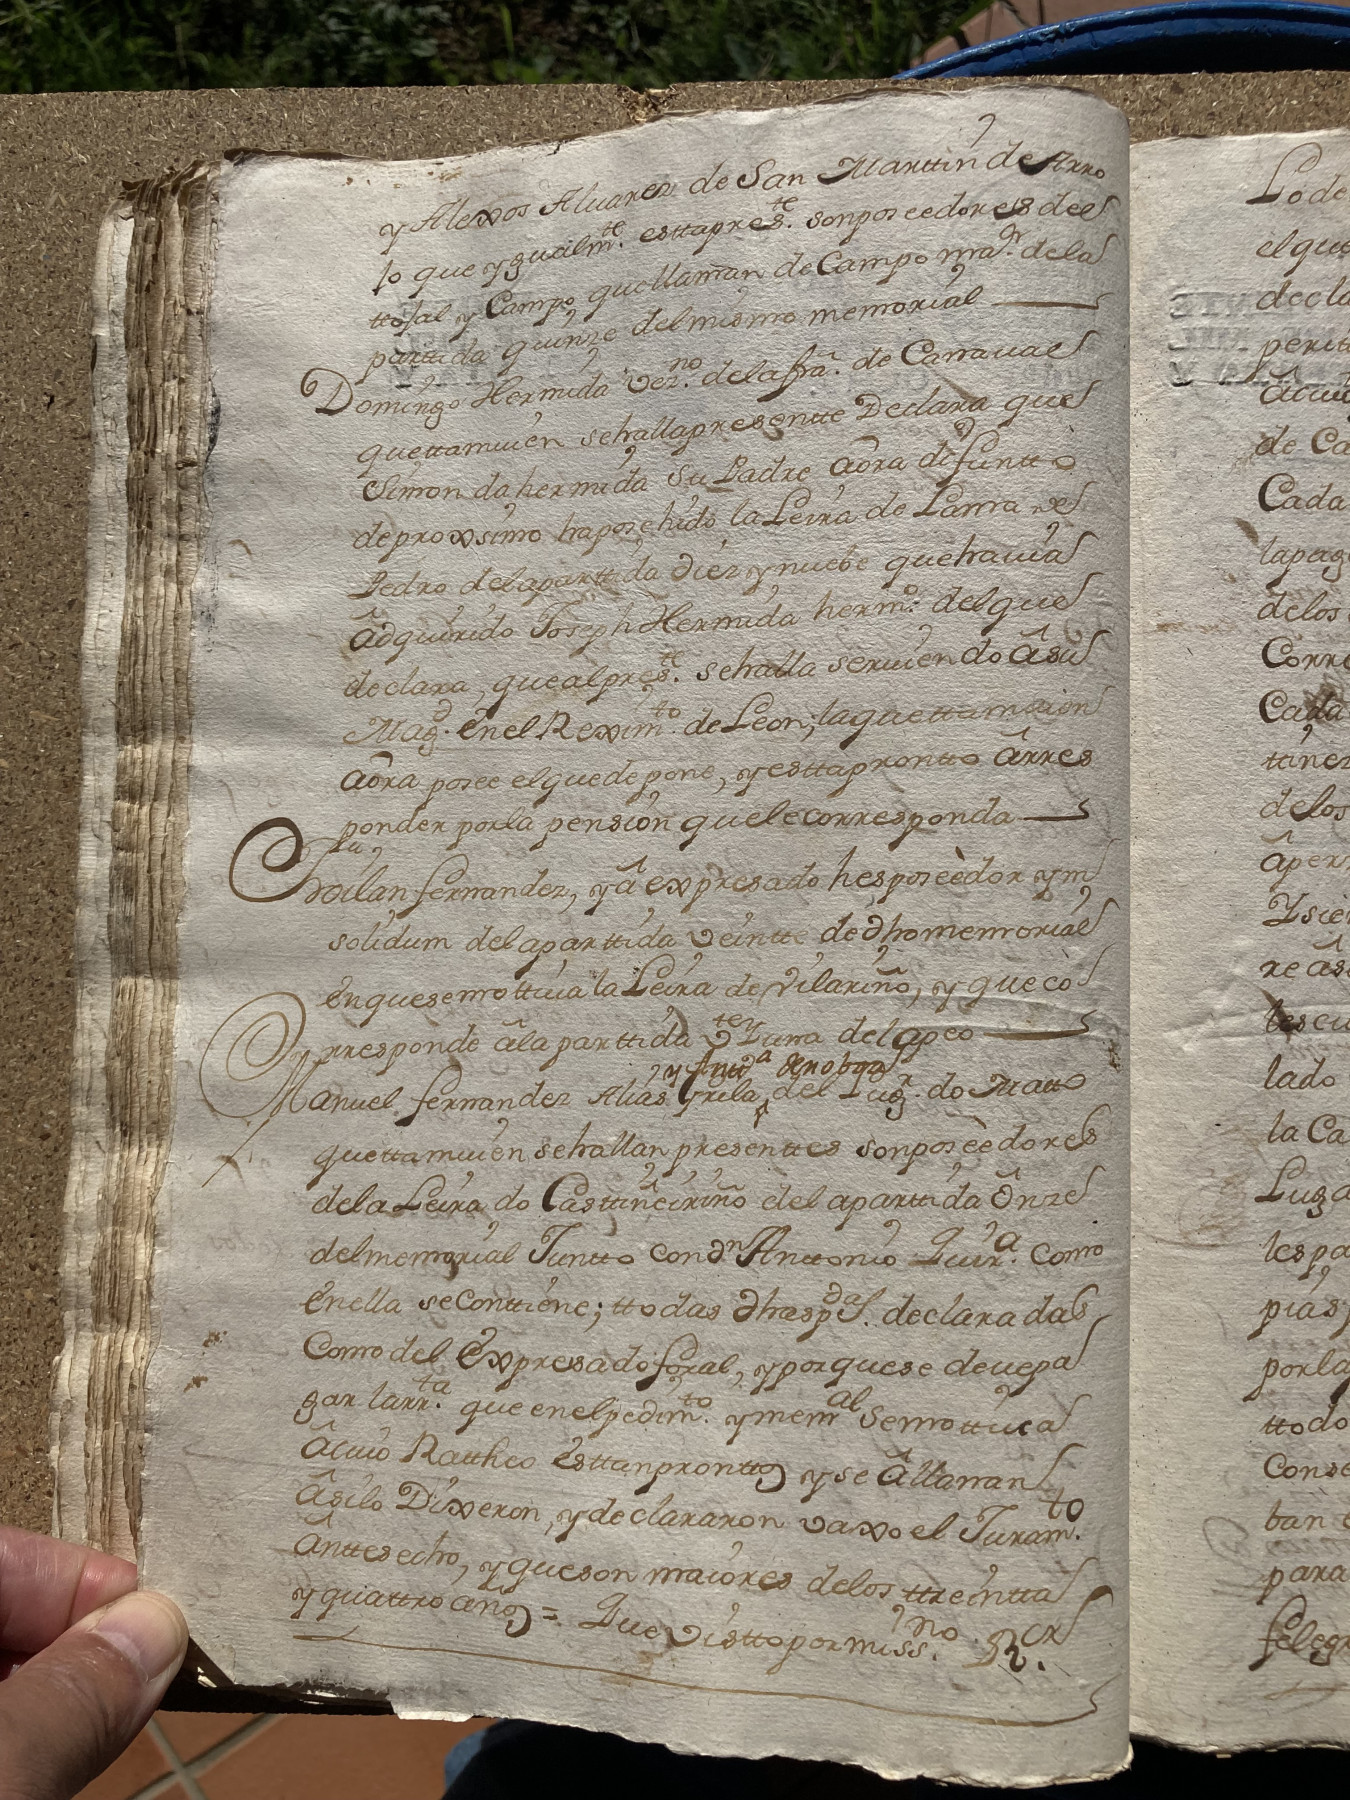 y Alexos Alvarez de San Marttin de Arro
lo que ygualm.te esttapres.te son poseedores del
ttojal y Campo quellaman de Campo ma.or dela
parttida quinze del mismo memorial
Domingo Hermida vez.no dela fra. de Carraual
quettamuien sehallapresentte Declara que
Simon da hermida Su Padre aora difuntto
deproxsimo haposehido la Leira de Lama de
Pedro delaparttida diez y nuebe quehauia
adquirido Joseph Hermida herm.o del que
declara, quealpres.te sehalla seruiendo a su
Mag.d en el Reximto. de Leon; laquettamvien
aora posee elquedepone, y esttaprontto a rres
ponder porla pension quelecorresponda
Froilan fernandez, ya expresado hesposeedor ym
solidum delaparttida veintte de dho memorial
enquesemottiua la Leira de Vilariño, y que co
rresponde ala parttida del apeo
y Antt.a
Manuel fernandez Alias Grila, del Lug.r do Matto
quettamuien sehallan presenttes sonposeedores
dela Leira do Casttiñeiriño delaparttida Onze
delmemorial Juntto con dn Anttonio Quir.a como
enella seconttiene; ttodas dhasp.das declaradas
Como del expresadoforal, yporquese deuepa
gar larr.ta que enelpedim.to ymem.al semottiua
acuio Ratheo esttanpronttos yse allanan
asilo Dixeron, ydeclararon vaxo el Juram.to
anttesecho, yqueson maiores delos ttreintta
y quattro años = Que visttopormiss.no Rr.
Lode
elque
decla
perit
de Ca
Cada
lapag
delos
Corre
Cada
ttinez
delos
aper
Ysie
lado
la Ca
Luga
lespa
pias
porla
ttodo
Conse
ban
para
feleg